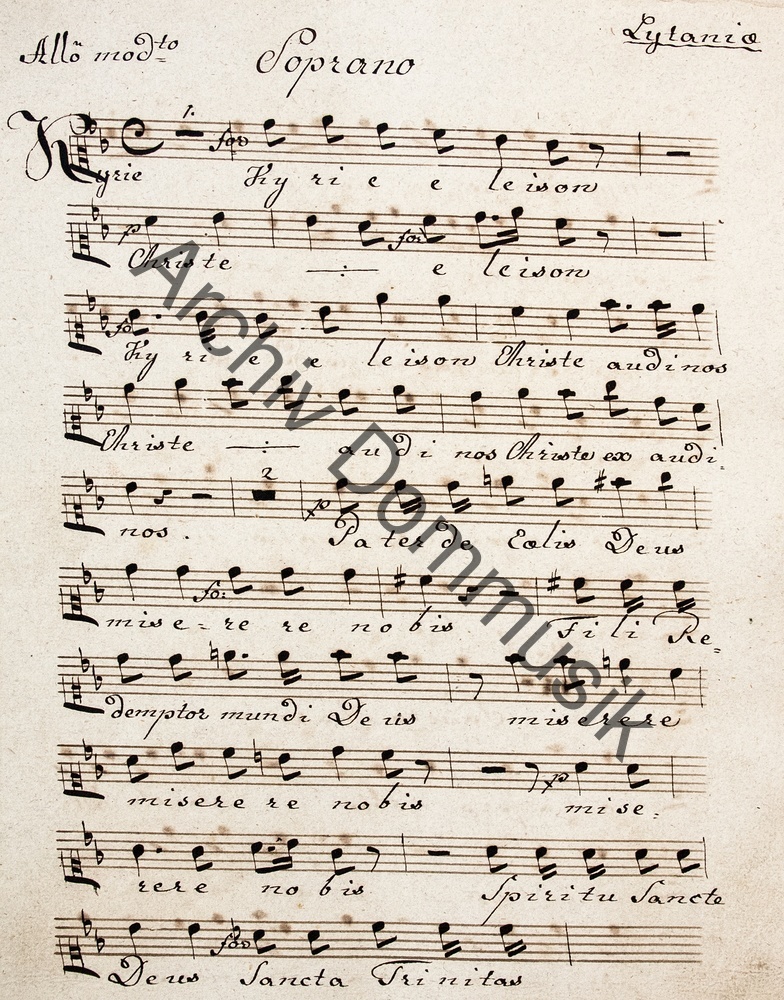 Lytaniæ
Allõ modto Soprano
1. for
Kyrie Kyrie eleison
p for
Christe -÷- eleison
fo
Kyrie eleison Christe audinos
Christe -÷- audi nos Christe ex audi-
2 p
nos. Pater de Cœlis Deus
fo:
mise-rere nobis Fili Re-
demptor mundi Deus miserere
p
miserere nobis mise-
rere nobis Spiritu Sancte
for
Deus Sancta Trinitas
Archiv Dommusik